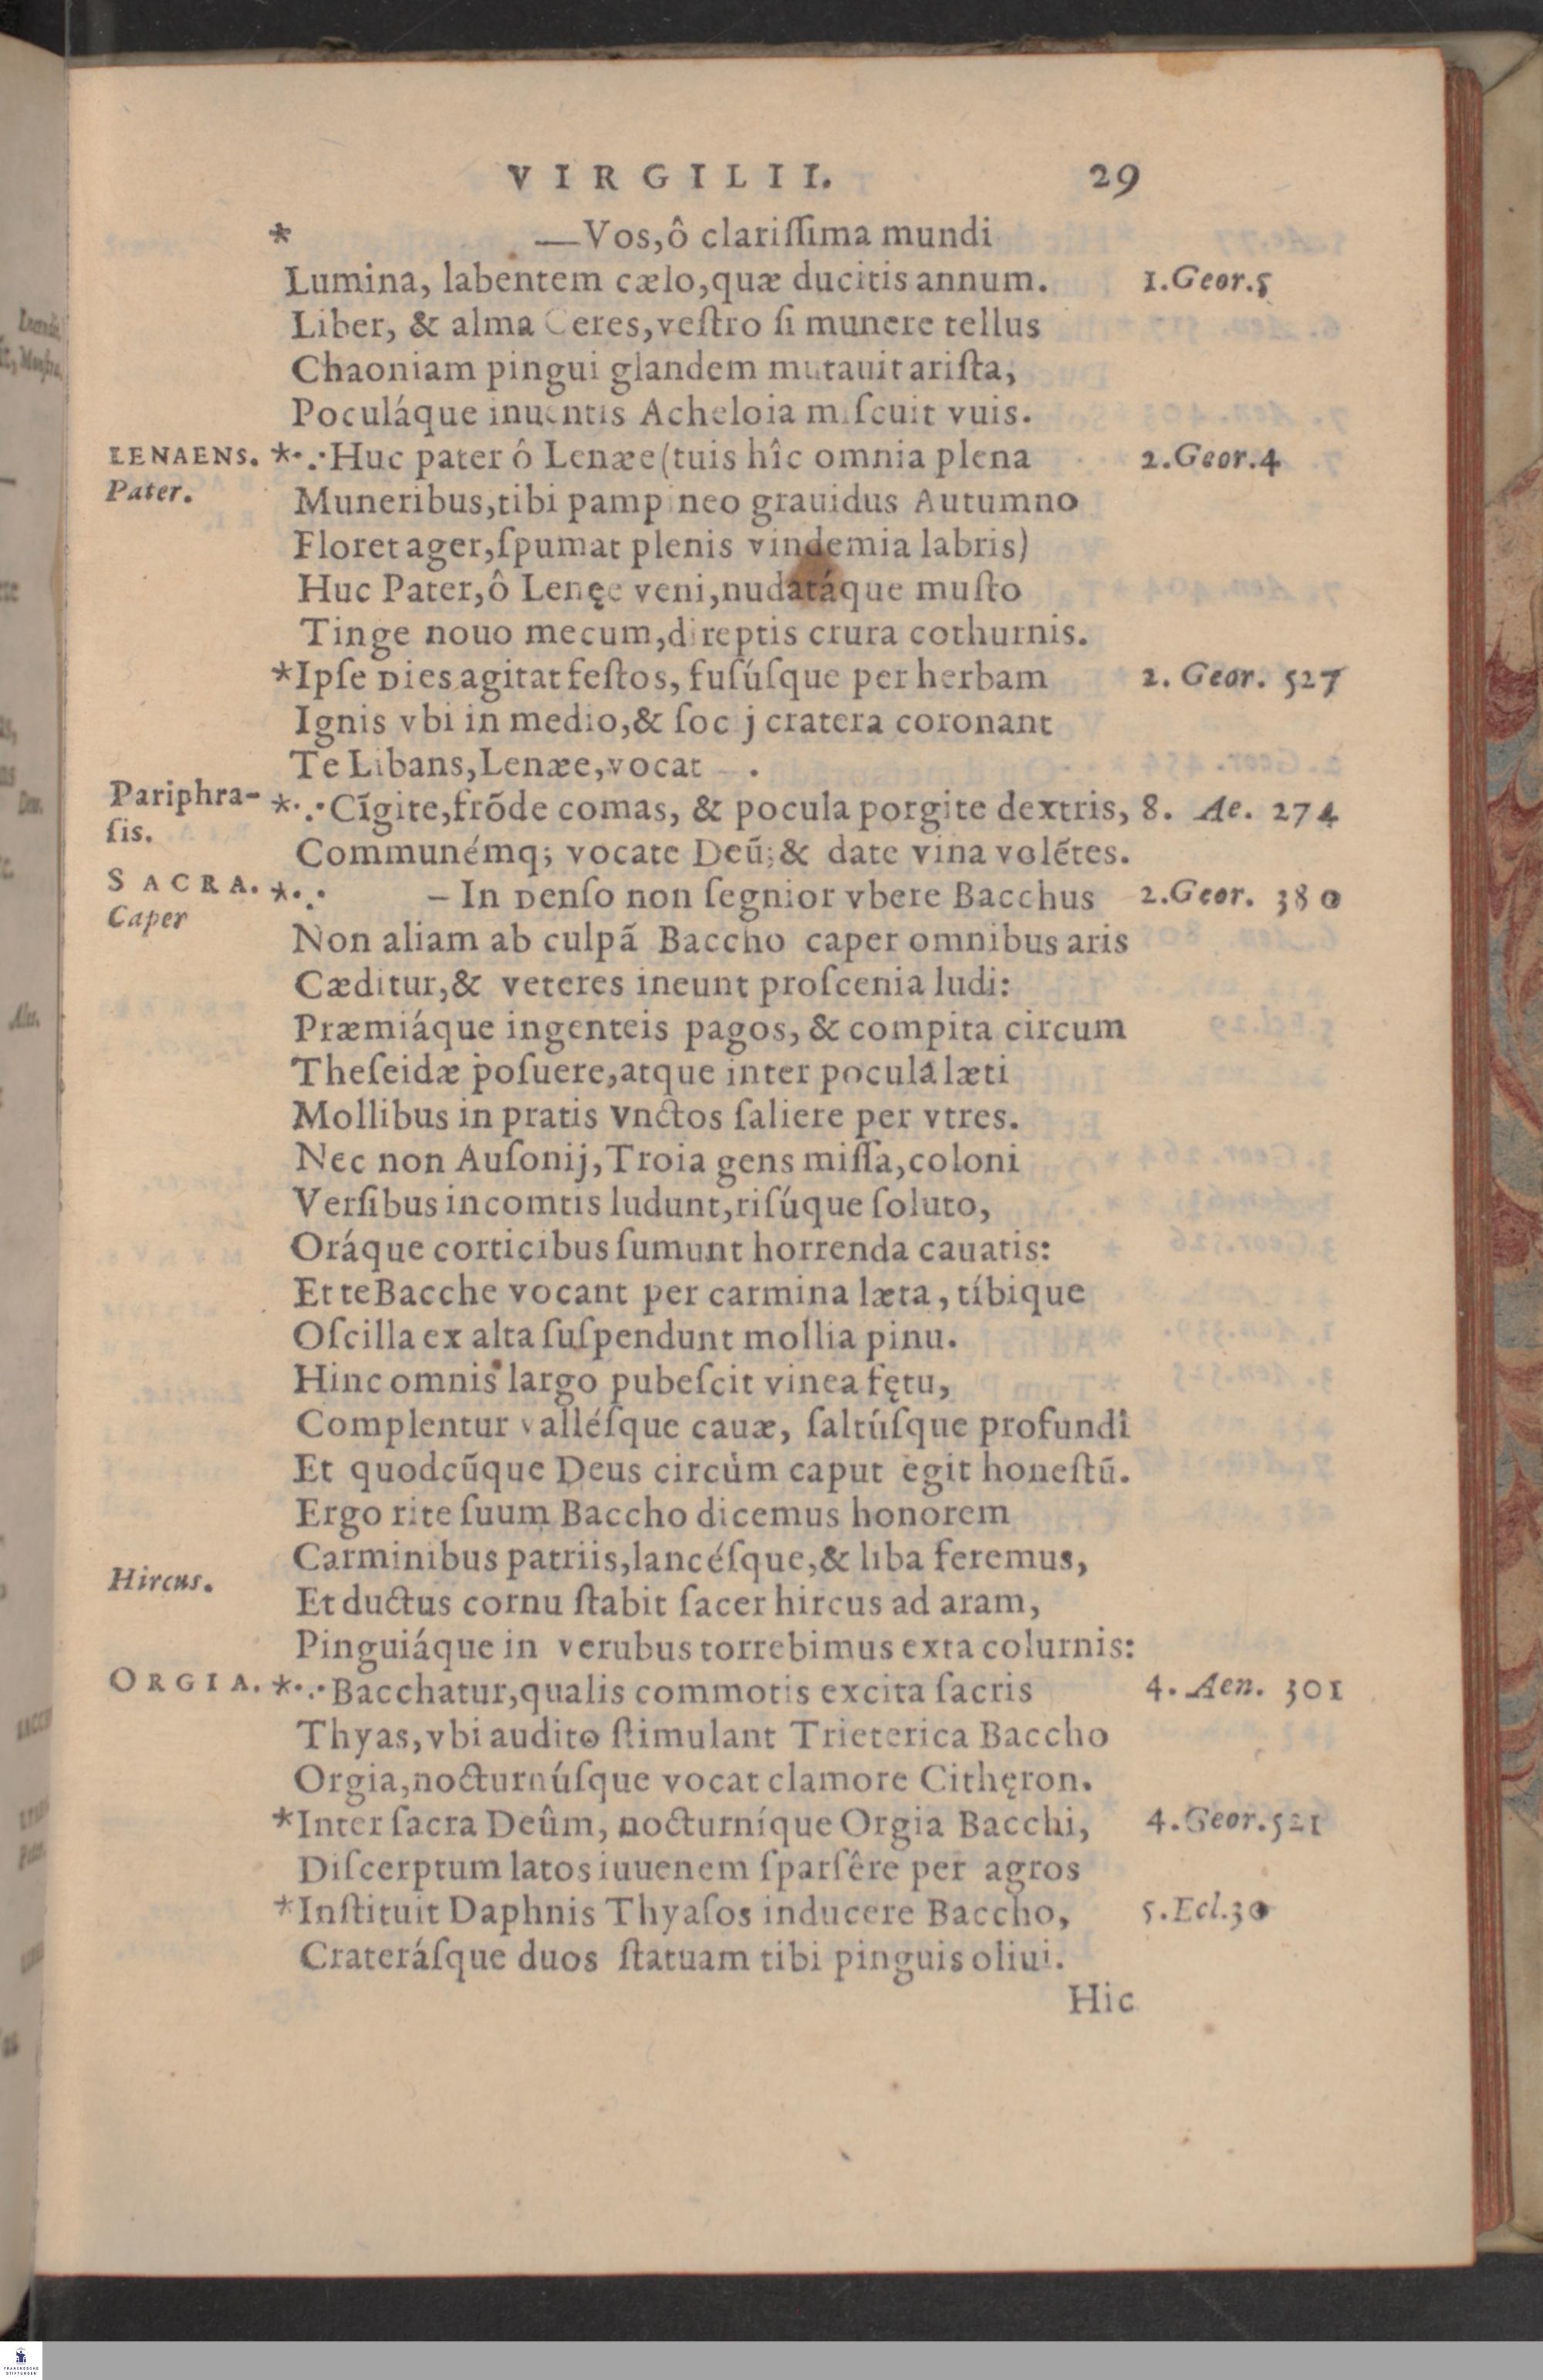 VIRGILII. 29
* —Vos,ô clariſſima mundi
Lumina, labentem cælo,quæ ducitis annum. 1.Geor.5
Liber, & alma Ceres,veſtro ſi munere tellus
Chaoniam pingui glandem mutauit ariſta,
Poculáque inuentis Acheloia miſcuit vuis.
LENAENS. *.·.Huc pater ô Lenæe(tuis hîc omnia plena 2.Geor.4
Pater. Muneribus,tibi pampineo grauidus Autumno
Floret ager,ſpumat plenis vindemia labris)
Huc Pater,ô Lenęe veni,nudatáque muſto
Tinge nouo mecum,direptis crura cothurnis.
*Ipſe Dies agitat feſtos, fuſúſque per herbam 2. Geor. 527
Ignis vbi in medio,& ſocij cratera coronant
Te Libans,Lenæe,vocat — .
Pariphra- *.·.Cĩgite,frõde comas, & pocula porgite dextris, 8. Ae. 274
ſis. Communémq; vocate Deũ;& date vina volẽtes.
SACRA. *.·. – In Denſo non ſegnior vbere Bacchus 2.Geor. 380
Caper Non aliam ab culpã Baccho caper omnibus aris
Cæditur,& veteres ineunt proſcenia ludi:
Præmiáque ingenteis pagos, & compita circum
Theſeidæ poſuere,atque inter pocula læti
Mollibus in pratis vnctos ſaliere per vtres.
Nec non Auſonij,Troia gens miſſa,coloni
Verſibus incomtis ludunt,riſúque ſoluto,
Oráque corticibus ſumunt horrenda cauatis:
Et te Bacche vocant per carmina læta, tíbique
Oſcilla ex alta ſuſpendunt mollia pinu.
Hinc omnis largo pubeſcit vinea fętu,
Complentur valléſque cauæ, ſaltúſque profundi
Et quodcũque Deus circùm caput egit honeſtũ.
Ergo rite ſuum Baccho dicemus honorem
Carminibus patriis,lancéſque,& liba feremus,
Hircus. Et ductus cornu ſtabit ſacer hircus ad aram,
Pinguiáque in verubus torrebimus exta colurnis:
ORGIA. *.·.Bacchatur,qualis commotis excita ſacris 4. Aen. 301
Thyas,vbi audito ſtimulant Trieterica Baccho
Orgia,nocturnúſque vocat clamore Cithęron.
*Inter ſacra Deûm, nocturníque Orgia Bacchi, 4.Geor.521
Diſcerptum latos iuuenem ſparſêre per agros
*Inſtituit Daphnis Thyaſos inducere Baccho, 5.Ecl.30
Crateráſque duos ſtatuam tibi pinguis oliui.
Hic